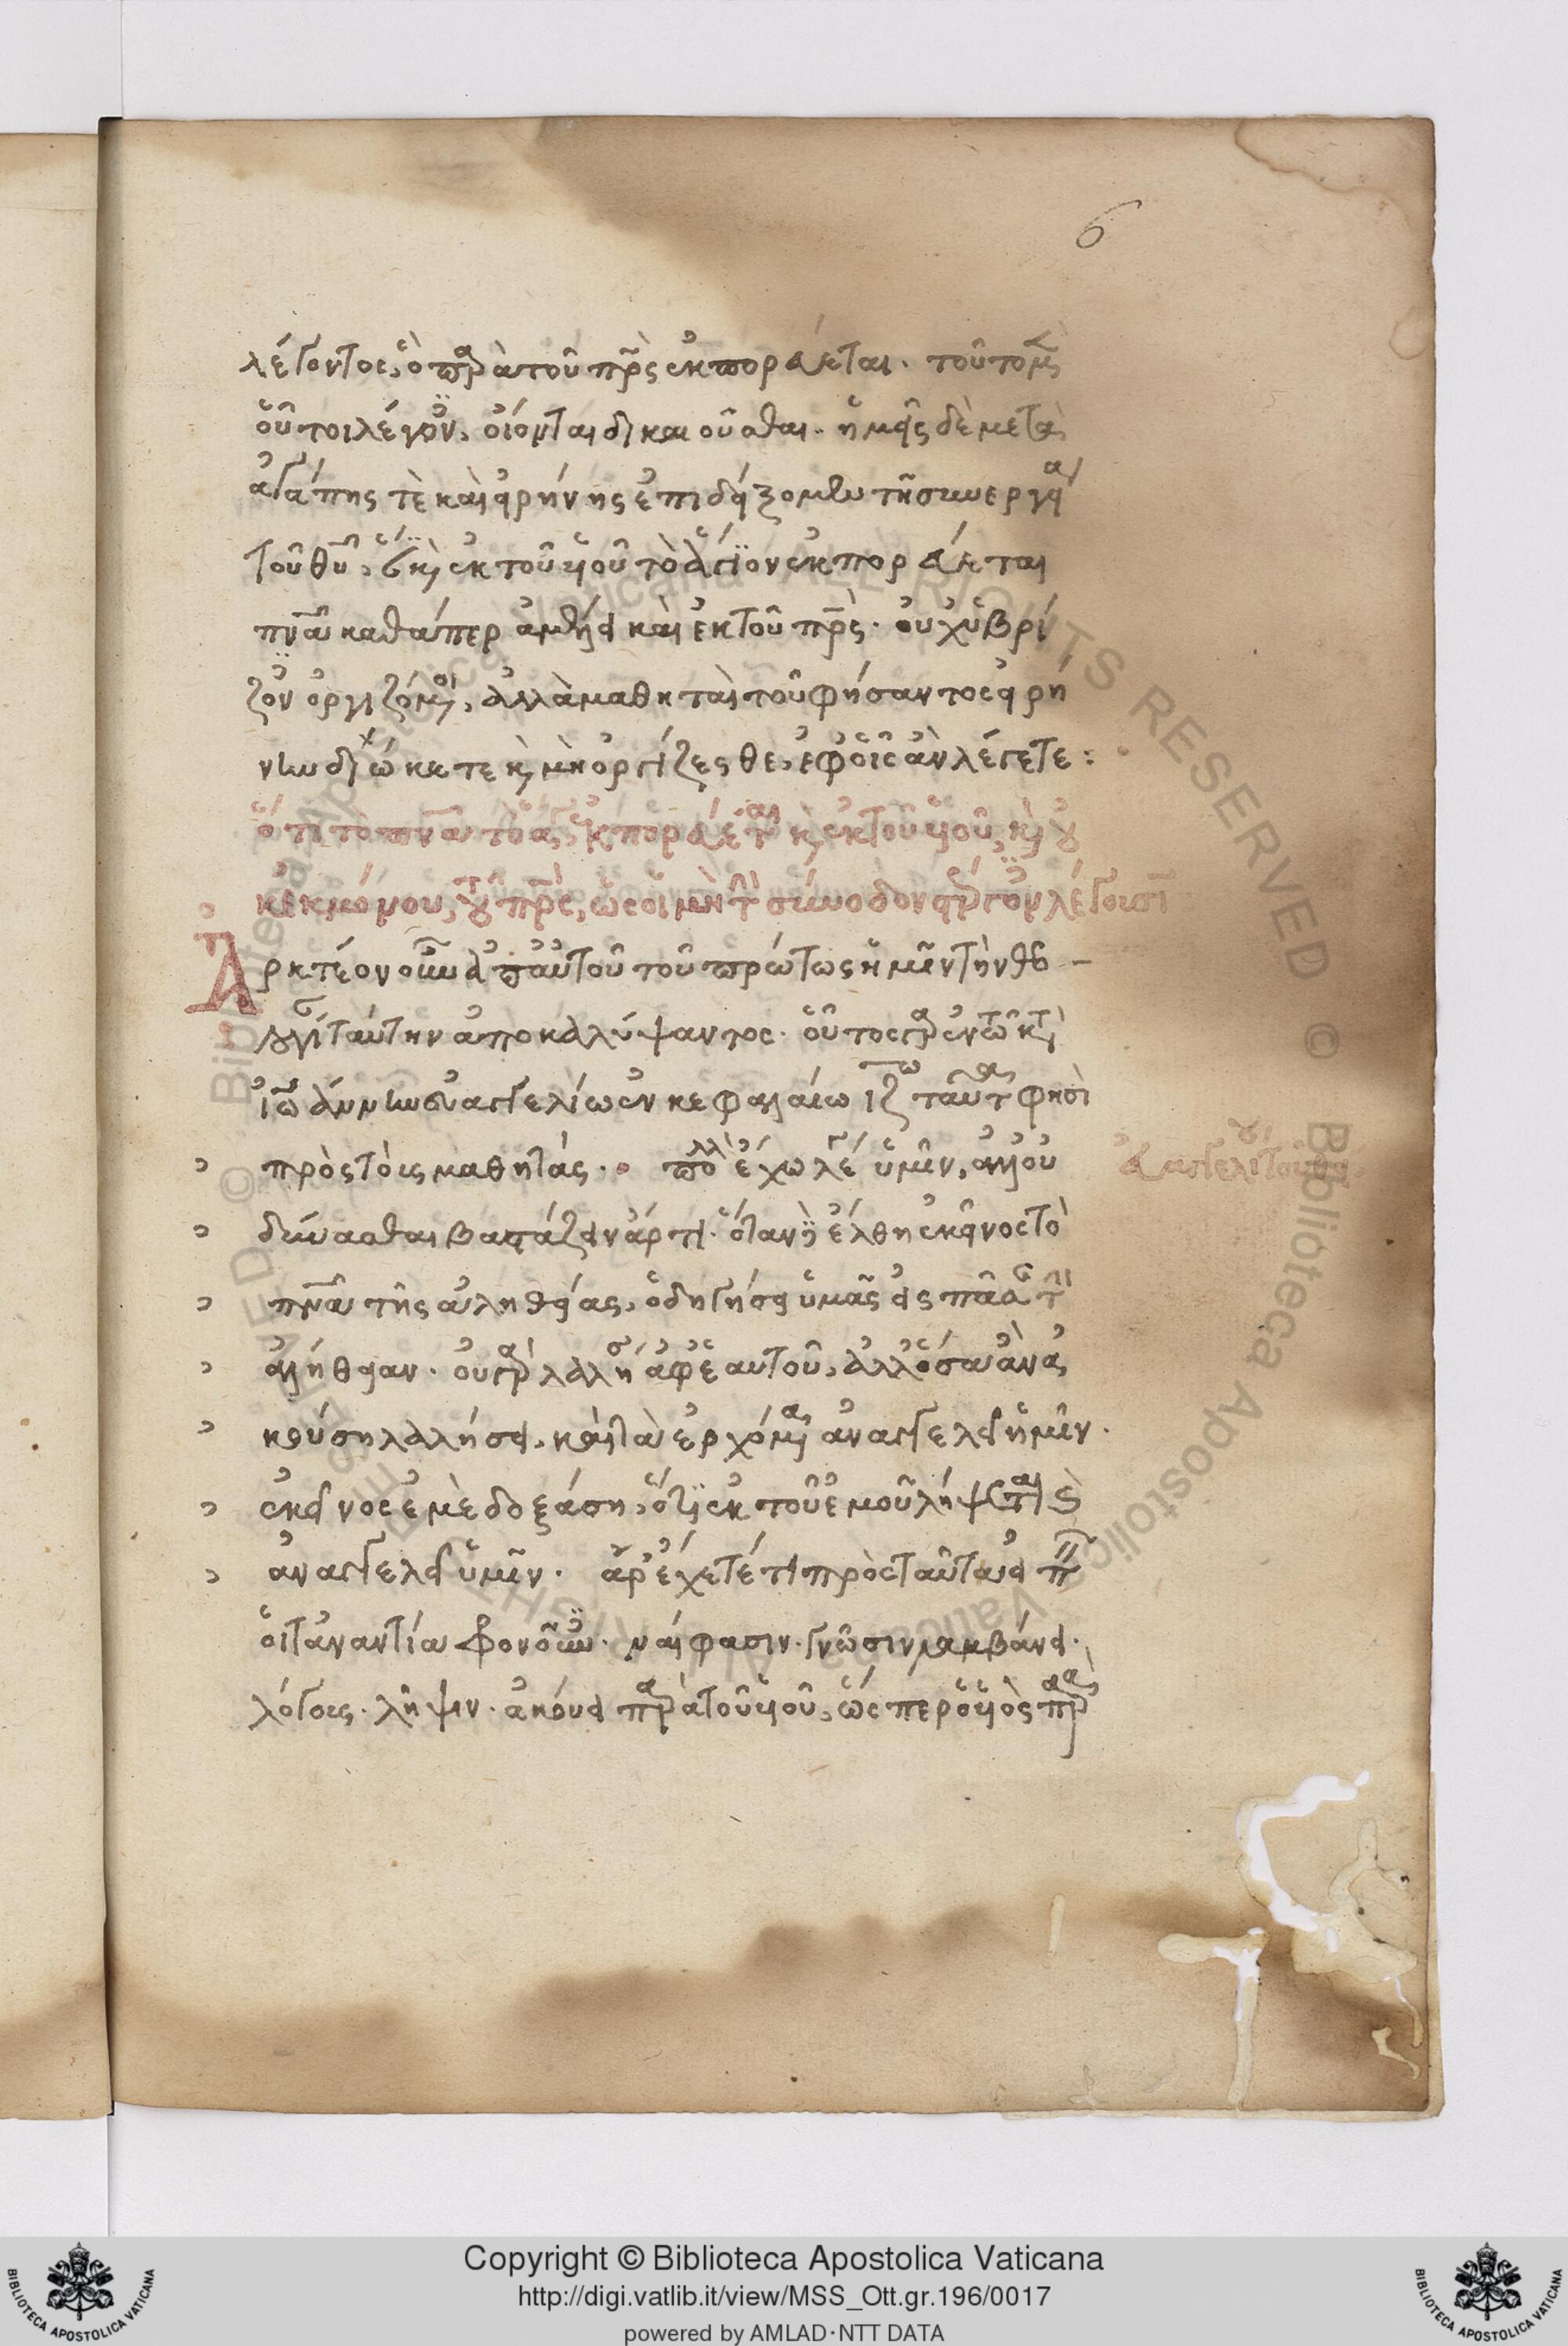 6
λέγοντος, ὃ παρὰ τοῦ πρς ἐκπορεύεται. τοῦτο μὲν
οὗτοι λέγον, οἴονται δικαιοῦσθαι. ἡμεῖς δὲ μετὰ
ἀγάπης τὲ καὶ εἰρήνης ἐπιδείξομεν τῆ συνεργεία
τοῦ θυ, ὅτι καὶ ἐκ τοῦ υἱοῦ τὸ ἅγιον ἐκπορεύεται
πνα καθάπερ ἀμέλει καὶ ἐκ τοῦ πρς. οὐχ ὑβρί
ζον ὀργιζόμενοι, ἀλλὰ μαθηταὶ τοῦ φήσαντος εἰρή
νην διώκετε καὶ μὴ ὀργίζεσθε, ἐφ οἷς ἂν λέγετε:
ὅτι τὸ πνα τὸ ἅγιον ἐκπορεύεται καὶ ἐκ τοῦ υἱοῦ, καὶ οὐ
κ ἐκ μόνου τοῦ πρς, ὡς οἱ μὴ τὴν σύνοδον λέγουσι
Ἀρκτέον οὖν ἀπ αὐτοῦ τοῦ πρώτως ἡμῖν τὴν θεο
λογίαν ταύτην ἀποκαλύψαντος. οὗτος γὰρ ἐν τῶ κατὰ
ἰωάννην εὐαγγελίω ἐν κεφαλαίω ιζ ταῦτα φησὶ
πρὸς τοὺς μαθητάς. πολλὰ ἔχω λέγειν ὑμῖν, ἀλλ οὐ
εὐαγγελίου
δύνασθαι βαστάζειν ἄρτι. ὅταν ἔλθη ἐκεῖνος τὸ
πνα τῆς ἀληθείας, ὁδηγήσει ὑμᾶς εἰς πᾶσαν τὴν
ἀλήθειαν. οὐ γὰρ λαλήσει ἀφ ἑαυτοῦ, ἀλλ ὅσα ἂν ἀ
κούση λαλήσει, καὶ τὰ ἐρχόμενα ἀναγγελεῖ ἡμῖν.
ἐκεῖνος ἐμὲ δοξάση, ὅτι ἐκ τοῦ ἐμοῦ λήψεται καὶ
ἀναγγελεῖ ὑμῖν. ἆρ ἔχετέ τι πρὸς ταῦτα εἰπεῖν
οἱ τἀναντία φρονοῦν. ναὶ φασιν. γνῶσιν λαμβάνει.
λόγοις. λῆψιν. ἀκούει παρὰ τοῦ υἱοῦ, ὥσπερ ὁ υἱὸς παρὰ
Copyright © Biblioteca Apostolica Vaticana
http://digi.vatlib.it/view/MSS_Ott.gr.196/0017
powered by AMLAD·NTT DATA